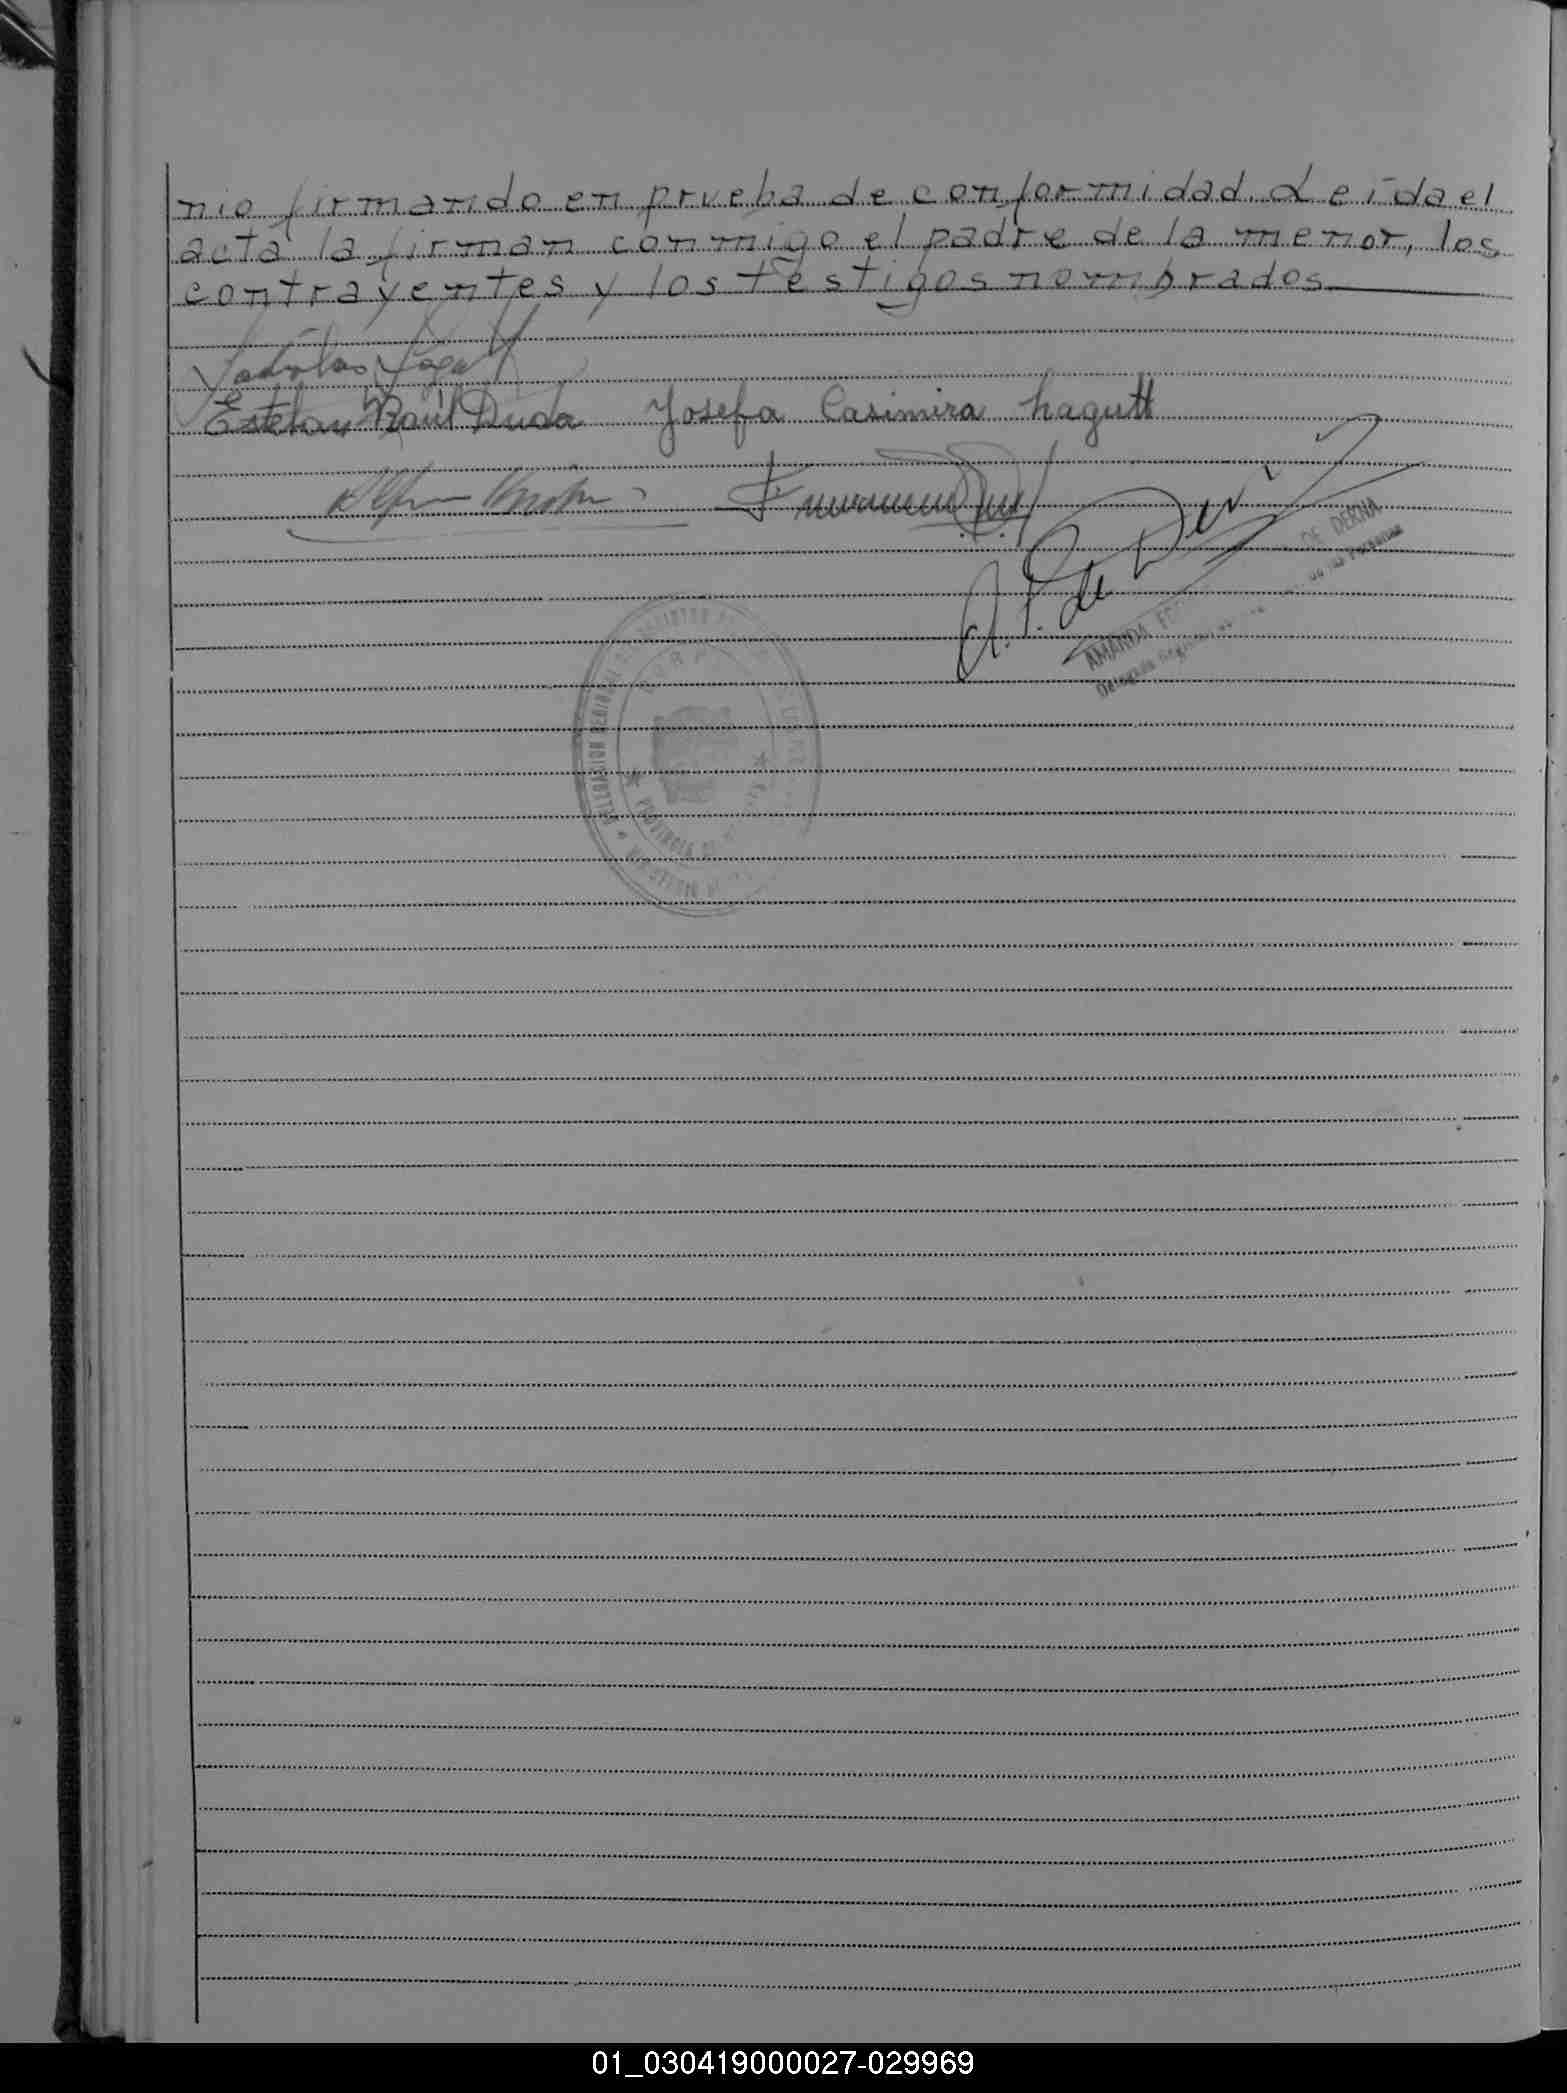 nio firmando en prueba de conformidad. Leída el
acta la firman conmigo el padre de la menor, los
contrayentes y los testigos nombrados
Esteban Raúl Duda Josefa Casimira hagutt
A. F. de
DE DERNA
AMANDA
de las Personas
DELEGACION REGIONAL
PROVINCIA DE
01_030419000027-029969